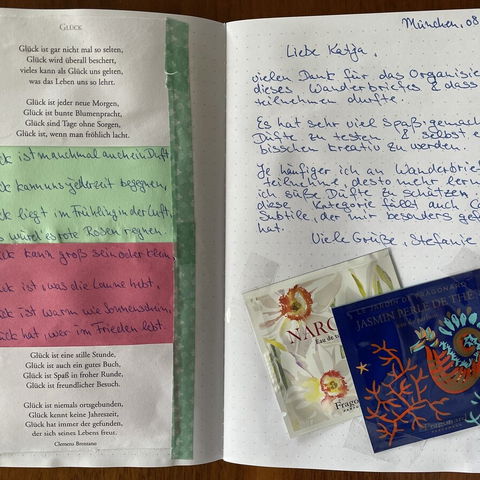 GLÜCK
Glück ist gar nicht mal so selten,
Glück wird überall beschert,
vieles kann als Glück uns gelten,
was das Leben uns so lehrt.
Glück ist jeder neue Morgen,
Glück ist bunte Blumenpracht,
Glück sind Tage ohne Sorgen,
Glück ist, wenn man fröhlich lacht.
ück ist manchmal auch ein Duft
ück kann uns jederzeit begegnen,
ück liegt im Frühling in der Luft,
würd' es rote Rosen regnen.
ück kann groß sein oder klein,
ück ist, was die Laune hebt,
ück ist warm wie Sonnenschein,
ück hat, wer im Frieden lebt.
Glück ist eine stille Stunde,
Glück ist auch ein gutes Buch,
Glück ist Spaß in froher Runde,
Glück ist freundlicher Besuch.
Glück ist niemals ortsgebunden,
Glück kennt keine Jahreszeit,
Glück hat immer der gefunden,
der sich seines Lebens freut.
Clemens Brentano
München, 08
Liebe Katja,
vielen Dank für das Organisie
dieses Wanderbriefes & dass
teilnehmen durfte.
Es hat sehr viel Spaß gemac
Düfte zu testen & selbst e
bisschen kreativ zu werden.
Je häufiger ich an Wanderbrief
teilnehme, desto mehr lern
ich süße Düfte zu schätzen.
diese Kategorie fällt auch
Subtile, der mir besonders gef
hat.
Viele Grüße, Stefanie
NAR
Eau de
Fragon
LE JARDIN DE FRAGONARD
JASMIN PERLE DE THÉ
Fragonard